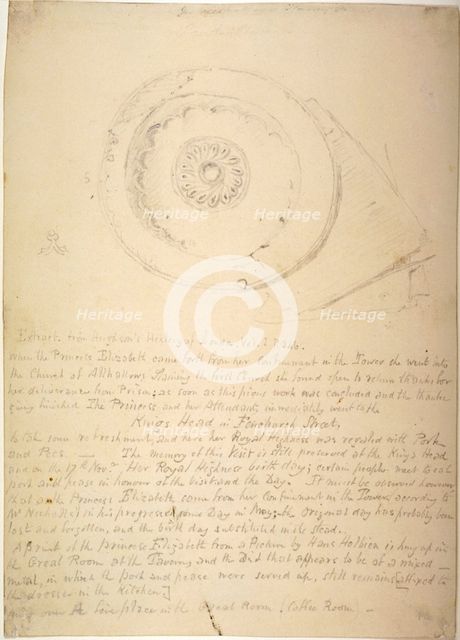 Extract from Hughson's History of London Vol. 2 P.
When the Princess Elizabeth came forth from her confinement in the Tower she went into
the Church of Allhallows Staining the first Church she found open to return thanks for
her deliverance from Prison; as soon as this pious work was concluded and the thanks
giving finished The Princess and her Attendants immediately went to the
Kings Head in Fenchurch Street,
to take some refreshment, and here her Royal Highness was regaled with Pork
and Peas. — The memory of this Visit is still preserved at the Kings Head
and on the 17th Novr. Her Royal Highness birth day; certain people meet to eat
pork and pease in honour of the Visit and the Day. It must be observed however
that as the Princess Elizabeth came from her Confinement in the Tower, according to
Mr Nichols in his progresses, some Day in May; the Original day has probably been
lost and forgotten, and the birth day substituted in its stead.
A print of the princess Elizabeth from a Picture by Hans Holbien is hung up in
the Great Room at the Tavern, and the Dish that appears to be of a mixed
metal, in which the pork and pease were served up, still remains affixed to
the dresser in the Kitchen
over A fire place with a Great Room (Coffee Room) –
Heritage Heritage
Heritage Heritage
Heritage Heritage
Heritage Heritage
©